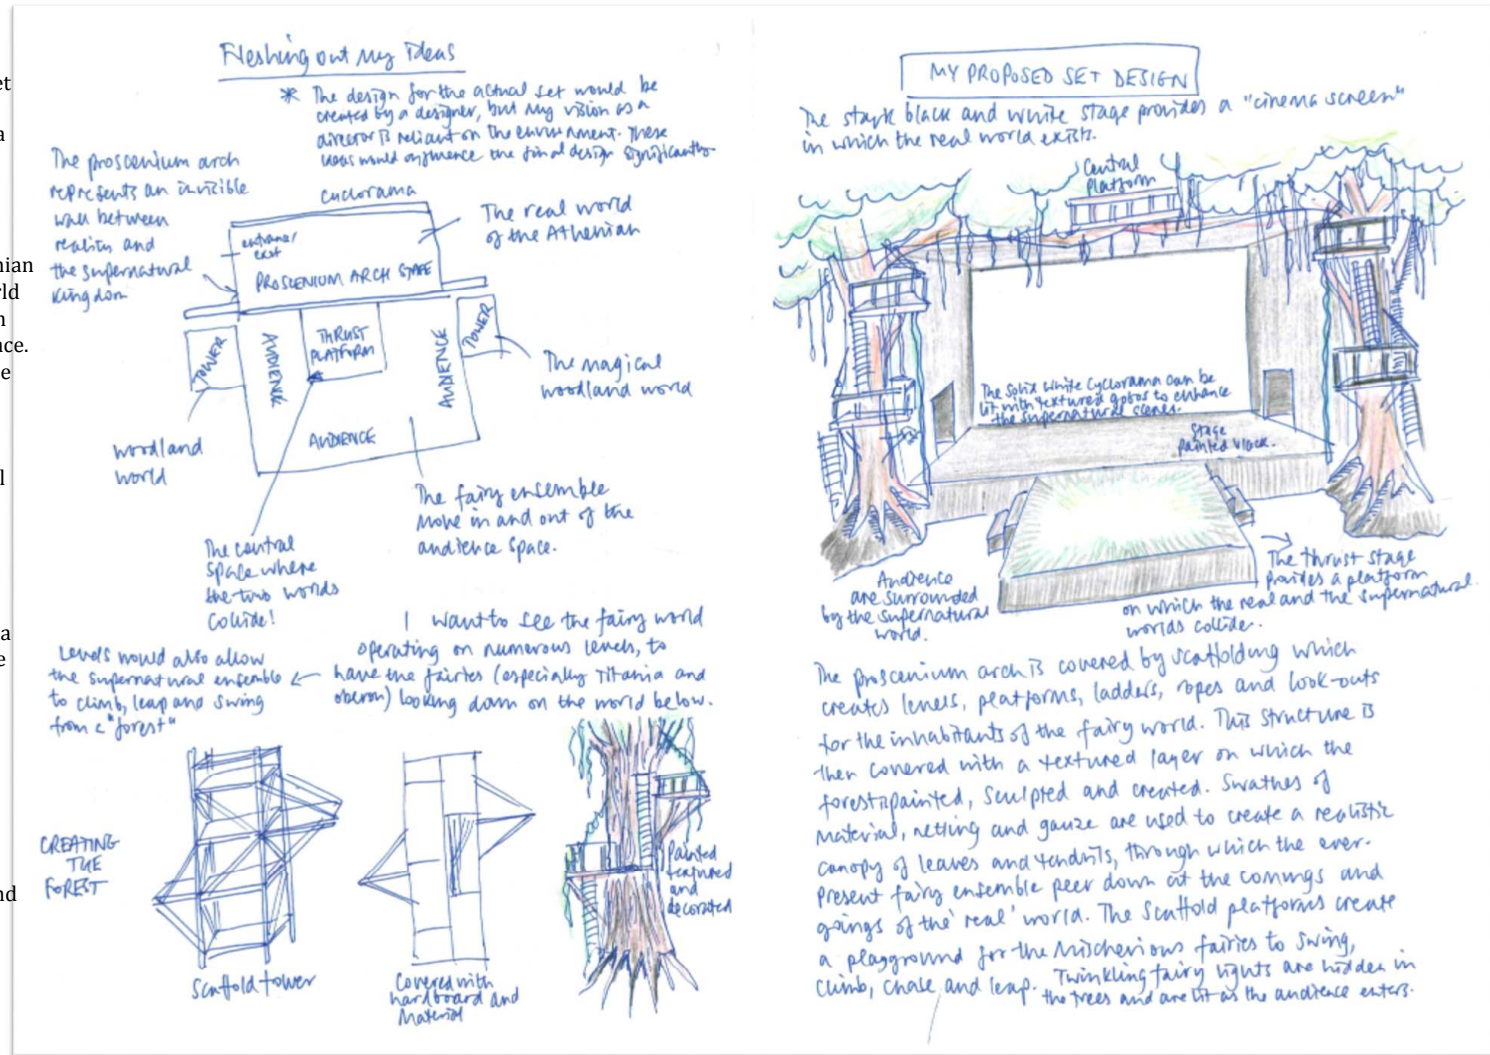 et
a
nian
rld
n
nce.
e
l
a
e
nd
Fleshing out my ideas
* The design for the actual set would be
created by a designer, but my vision as a
director is reliant on the environment. These
ideas would influence the final design significantly.
The proscenium arch
represents an invisible
wall between
realism and
the supernatural
kingdom
cyclorama
entrance/
exit
PROSCENIUM ARCH STAGE
The real world
of the Athenian
TOWER
AUDIENCE
THRUST
PLATFORM
AUDIENCE
TOWER
AUDIENCE
The magical
woodland world
woodland
world
The fairy ensemble
move in and out of the
audience space.
The central
space where
the two worlds
collide!
I want to see the fairy world
operating on numerous levels, to
have the fairies (especially Titania and
oberon) looking down on the world below.
Levels would also allow
the supernatural ensemble
to climb, leap and swing
from a "forest"
CREATING
THE
FOREST
Scaffold tower
Covered with
hardboard and
Material
Painted
textured
and
decorated
MY PROPOSED SET DESIGN
The stark black and white stage provides a "cinema screen"
in which the real world exists.
Central
Platform
The solid white cyclorama can be
lit with textured gobos to enhance
the supernatural scenes.
Stage
painted black.
Audience
are surrounded
by the supernatural
world.
The thrust stage
provides a platform
on which the real and the supernatural
worlds collide.
The proscenium arch is covered by scaffolding which
creates levels, platforms, ladders, ropes and look-outs
for the inhabitants of the fairy world. This structure is
then covered with a textured layer on which the
forest is painted, sculpted and created. Swathes of
material, netting and gauze are used to create a realistic
canopy of leaves and tendrils, through which the ever-
present fairy ensemble peer down at the comings and
goings of the 'real' world. The scaffold platforms create
a playground for the mischevious fairies to swing,
climb, chase and leap. Twinkling fairy lights are hidden in
the trees and are lit as the audience enters.